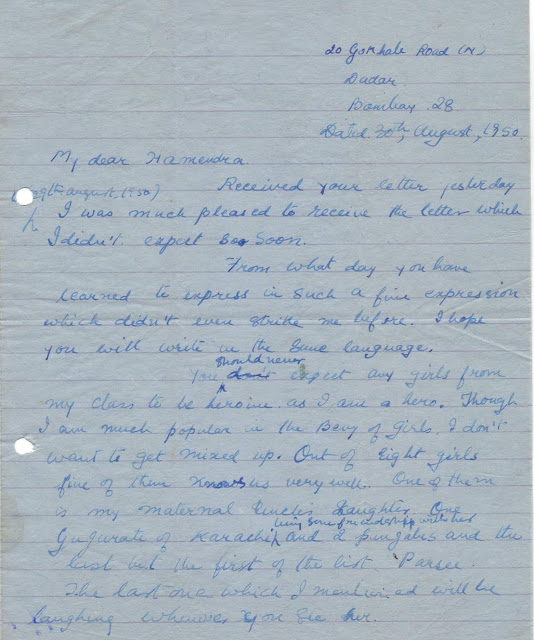 20 Gokhale Road (N)
Dadar
Bombay 28
Dated 30th, August, 1950.
My dear Hamendra
(29th august, 1950) Received your letter yesterday
I was much pleased to receive the letter which
I didn't expect soo soon.
From what day you have
learned to express in such a fine expression
which didn't even strike me before. I hope
you will write in the same language.
should never
You don't expect any girls from
my class to be heroine as I am a hero. Though
I am much popular in the Bevy of girls, I don't
want to get mixed up. Out of eight girls
five of them knows us very well. One of them
is my maternal Uncle's daughter. One
some friendship with her
Gugurate of Karachi, and 2 punjabis and the
last but the first of the list Parsee.
The last one which I mentioned will be
laughing whenever you see her.